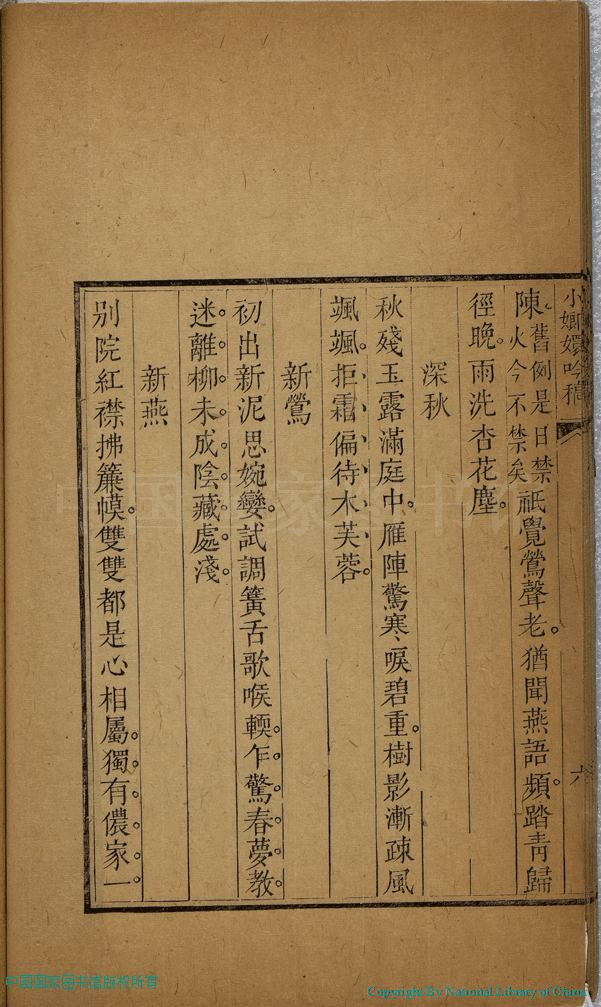 小嫏嬛吟稿
六
陳舊例是日禁火今不禁矣祗覺鶯聲老。猶聞燕語頻。踏青歸
徑晚。雨洗杏花塵。
深秋
秋殘玉露滿庭中。雁陣驚寒、唳碧重。樹影漸疎風
颯颯。拒霜偏待木芙蓉。
新鶯
初出新泥思婉孌。試調簧舌歌喉輭。乍驚春夢教
迷離。柳未成陰藏處淺。
新燕
別院紅襟拂簾幙。雙雙都是心相屬。獨有儂家一
中国国家图书馆版权所有
Copyright By National Library of China